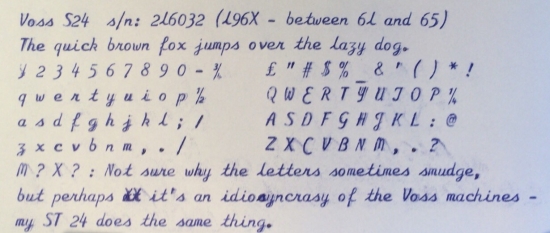 Voss S24 s/n: 216032 (196X - between 61 and 65)
The quick brown fox jumps over the lazy dog.
2 3 4 5 6 7 8 9 0 - £ " # $ % _ & ' ( ) * !
q w e r t y u i o p ½ Q W E R T Y U I O P ¼
a s d f g h j k l ; / A S D F G H J K L : @
z x c v b n m , . / Z X C V B N M , . ?
M ? X ? : Not sure why the letters sometimes smudge,
but perhaps it's an idiosyncrasy of the Voss machines -
my ST 24 does the same thing.